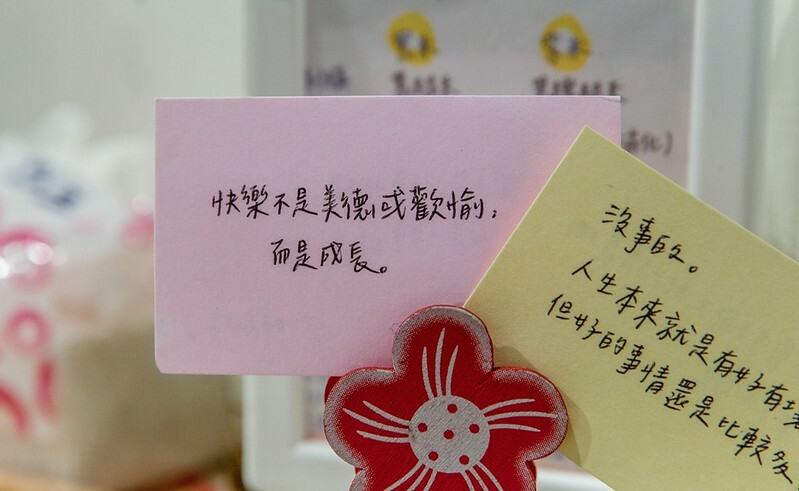 快樂不是美德或歡愉,
而是成長。
沒事的。
人生本來就是有好有壞
但好的事情還是比較多